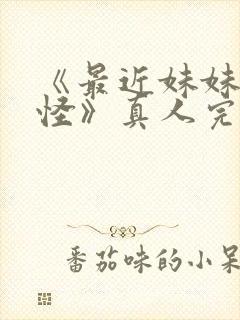 《最近妹妹
怪》真人完
番茄味的小呆